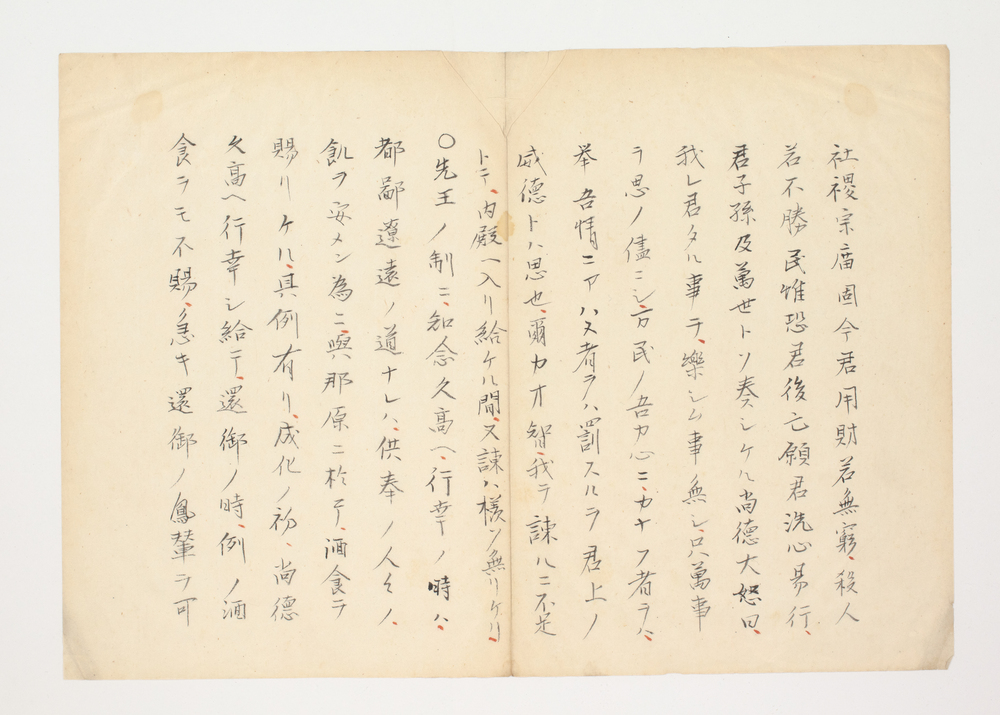 社禝宗庿固今君用財若無窮、殺人
若不勝民惟恐君後亡願君洗心易行、
君子孫及萬世トソ奏シケル尚德大怒曰、
我レ君タル事ヲ、樂シム事無シ、只萬事
ヲ思ノ儘ニシ、万民ノ吾カ心ニ、カナフ者ヲハ、
举吾情ニアハヌ者ヲハ罰スルヲ君上ノ
威德トハ思也、爾カオ智、我ヲ諫ルニ不足
トテ、内殿ヘ入リ給ケル間、又諫ハ樣ソ無リケリ、
〇先王ノ制ニ、知念久高ヘ、行幸ノ時ハ、
都鄙遼遠ノ道ナレハ、供奉ノ人々ノ、
飢ヲ安メン為ニ、與那原ニ於テ、酒食ヲ
賜リケル、具例有リ、成化ノ初、尚德
久高ヘ行幸シ給テ、還御ノ時、例ノ酒
食ヲモ不賜、急キ還御ノ鳳輦ヲ可